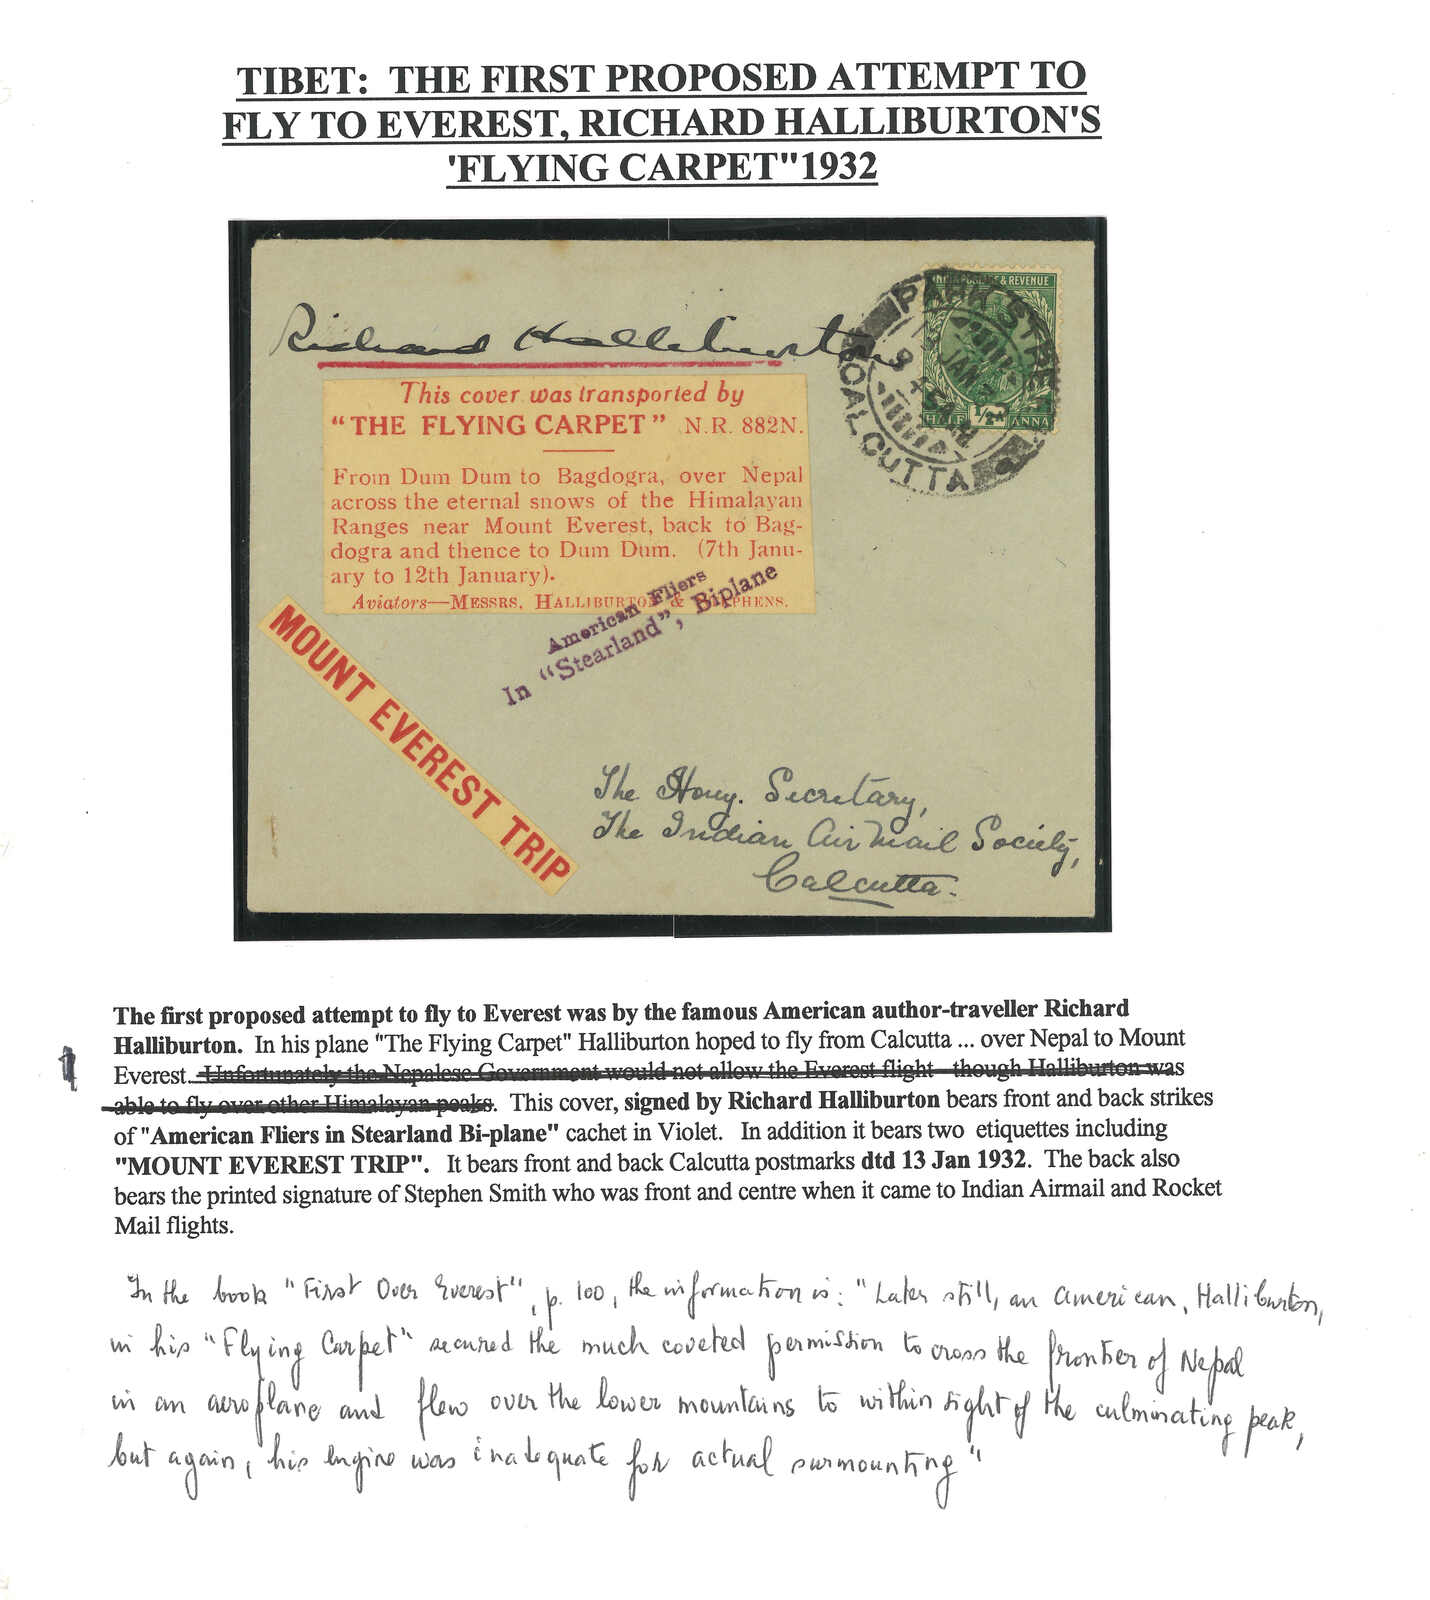 TIBET: THE FIRST PROPOSED ATTEMPT TO
FLY TO EVEREST, RICHARD HALLIBURTON'S
'FLYING CARPET"1932
Richard Halliburton
INDIA POSTAGE & REVENUE
HALF ½A ANNA
PARK STREET
CALCUTTA
This cover was transported by
"THE FLYING CARPET" N.R. 882N.
From Dum Dum to Bagdogra, over Nepal
across the eternal snows of the Himalayan
Ranges near Mount Everest, back to Bag-
dogra and thence to Dum Dum. (7th Janu-
ary to 12th January).
Aviators—MESSRS. HALLIBURTON & STEPHENS.
American Fliers
In "Stearland", Biplane
MOUNT EVEREST TRIP
The Hony. Secretary,
The Indian Air Mail Society,
Calcutta.
The first proposed attempt to fly to Everest was by the famous American author-traveller Richard
Halliburton. In his plane "The Flying Carpet" Halliburton hoped to fly from Calcutta ... over Nepal to Mount
Everest. Unfortunately the Nepalese Government would not allow the Everest flight though Halliburton was
able to fly over other Himalayan peaks. This cover, signed by Richard Halliburton bears front and back strikes
of "American Fliers in Stearland Bi-plane" cachet in Violet. In addition it bears two etiquettes including
"MOUNT EVEREST TRIP". It bears front and back Calcutta postmarks dtd 13 Jan 1932. The back also
bears the printed signature of Stephen Smith who was front and centre when it came to Indian Airmail and Rocket
Mail flights.
In the book "First Over Everest", p. 100, the information is: "Later still, an American, Halliburton,
in his "Flying Carpet" secured the much coveted permission to cross the frontier of Nepal
in an aeroplane and flew over the lower mountains to within sight of the culminating peak,
but again, his engine was inadequate for actual surmounting"